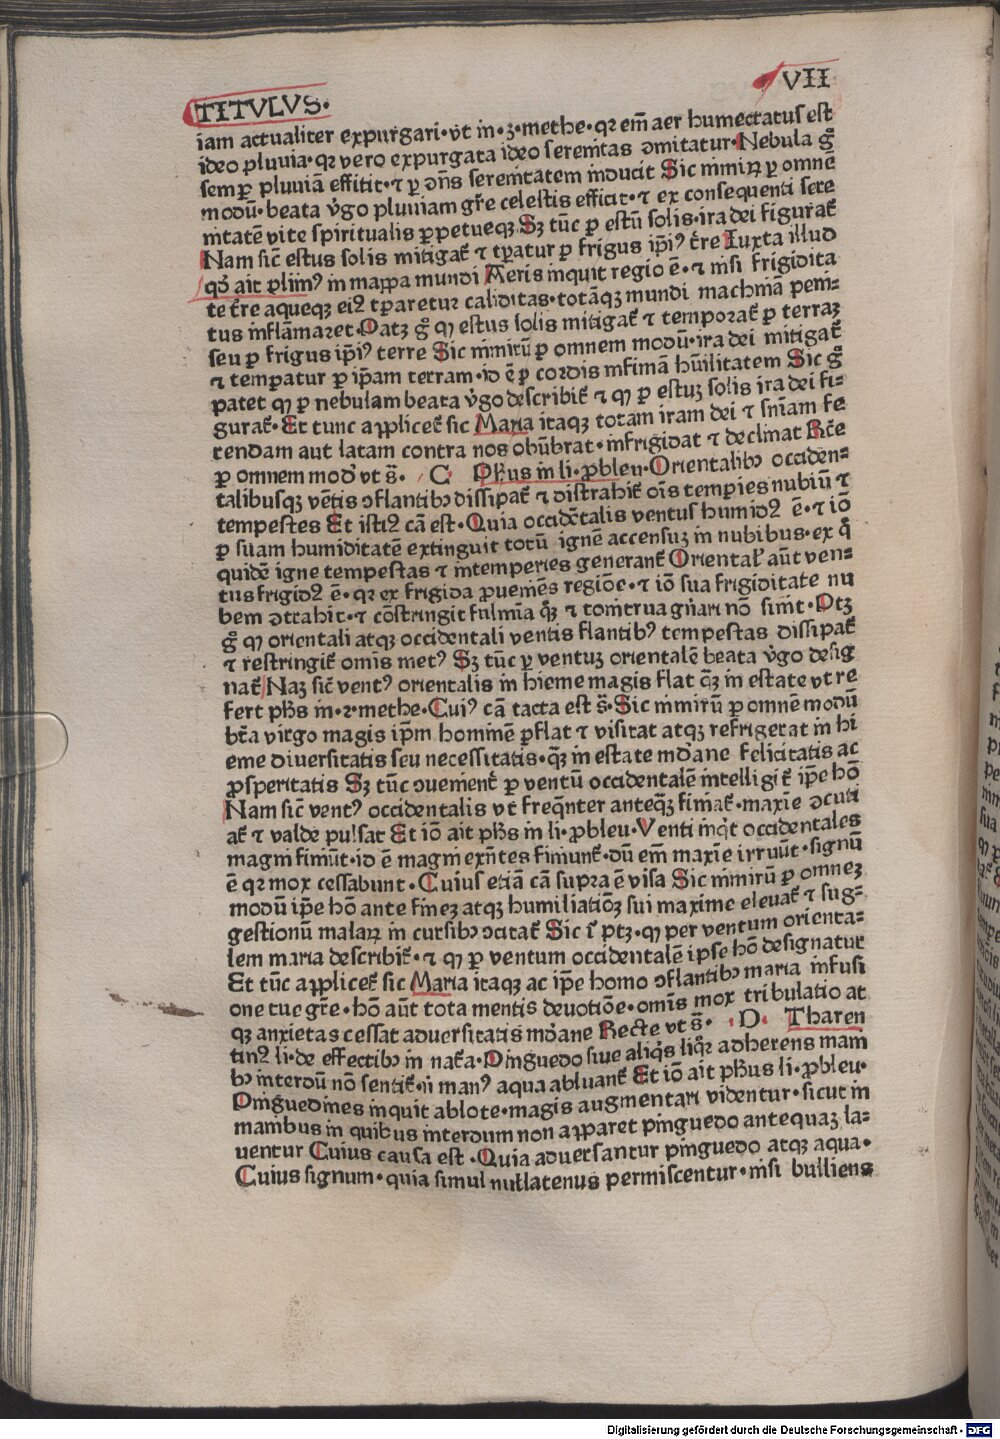 TITVLVS·
VII
iam actualiter expurgari·vt in·3·methe·qꝛ em̄ aer humectatus est
ideo pluuia·qꝛ vero expurgata ideo serenitas ↄmitatur·Nebula g̊
semꝑ pluuiā effitit·⁊ ꝑ ↄn̄s serenitatem inducit Sic nimiꝝ ꝑ omnē
modū·beata v̓go pluuiam gr̄e celestis efficit·⁊ ex consequenti sere
nitatē vite spiritualis ꝑpetueqꝫ Sꝫ tūc ꝑ estū solis·ira dei figurat̄
Nam sic̄ estus solis mitigat̄ ⁊ tꝑatur ꝑ frigus ip̄i⁹ t̄re Iuxta illud
qd̄ ait plini⁹ in mappa mundi Aeris inquit regio ē·⁊ nisi frigidita
te t̄re aqueqꝫ ei⁹ tꝑaretur caliditas·totāqꝫ mundi machinā peni⸗
tus inflāmaret·Patꝫ g̊ ꝙ estus solis mitigat̄ ⁊ temporat̄ ꝑ terraꝫ
seu ꝑ frigus ip̄i⁹ terre Sic nimirū ꝑ omnem modū·ira dei mitigat̄
⁊ temꝑatur ꝑ ip̄am terram·id ē ꝑ cordis infimā hūilitatem Sic g̊
patet ꝙ ꝑ nebulam beata v̓go describit̄ ⁊ ꝙ ꝑ estuꝫ solis ira dei fi⸗
gurat̄·Et tunc applicet̄ sic Maria itaqꝫ totam iram dei ⁊ sn̄iam fe
rendam aut latam contra nos obūbrat·infrigidat ⁊ declinat Rc̄e
ꝑ omnem mod̄ vt s̄· · C Ph̄us in li·ꝓbleu·Orientalibꝰ occiden⸗
talibusqꝫ vētis ↄflantibꝰ dissipat̄ ⁊ distrahit̄ oīs temperies nubiū ⁊
tempestes Et isti⁹ cā est·Quia occidētalis ventus humid⁹ ē·⁊ iō
ꝑ suam humiditatē extinguit totū ignē accensuꝫ in nubibus·ex q̊
quidē igne tempestas ⁊ intemperies generant̄ Oriental̓ aūt ven⸗
tus frigid⁹ ē·qꝛ ex frigida ꝓueniēs regiōe·⁊ iō sua frigiditate nu
bem ↄtrahit·⁊ cōstringit fulmīa q̄ꝫ ⁊ tonitrua gn̄ari nō sinit·Ptꝫ
g̊ ꝙ orientali atqꝫ occidentali ventis flantibꝰ tempestas dissipat̄
⁊ restringit̄ omīs met⁹ Sꝫ tūc ꝑ ventuꝫ orientalē beata v̓go desig
nat̄ Naꝫ sic̄ vent⁹ orientalis in hieme magis flat q̄ꝫ in estate vt re
fert ph̄s in·2·methe·Cui⁹ cā tacta est s̄·Sic nimirū ꝑ omnē modū
bt̄a virgo magis ip̄m hominē ꝑflat ⁊ visitat atqꝫ refrigerat in hi
eme diuersitatis seu necessitatis·q̄ꝫ in estate mūdane felicitatis ac
ꝓsperitatis Sꝫ tūc ↄuenient̄ ꝑ ventū occidentalē intelligit̄ ip̄e hō
Nam sic̄ vent⁹ occidentalis vt freq̄nter anteq̄ꝫ finiat̄·maxīe ↄcuti
at̄ ⁊ valde pulsat Et iō ait ph̄s in li·ꝓbleu·Venti inq̇t occidentales
magni finiūt·id ē magni exn̄tes finiunt̄·dū em̄ maxīe irruūt·signū
ē qꝛ mox cessabunt·Cuius etiā cā supra ē visa Sic nimirū ꝑ omneꝫ
modū ip̄e hō ante fineꝫ atqꝫ humiliatiōꝫ sui maxime eleuat̄ ⁊ sug⸗
gestionū malaꝝ in cursibꝰ ↄcitat̄ Sic ī ptꝫ·ꝙ per ventum orienta⸗
lem maria describit̄·⁊ ꝙ ꝑ ventum occidentalē ipse hō designatur
Et tūc applicet̄ sic Maria itaqꝫ ac ip̄e homo ↄflantibꝰ maria infusi
one tue gr̄e·hō aūt tota mentis deuotiōe·omīs mox tribulatio at
qꝫ anxietas cessat aduersitatis mūdane Recte vt s̄· · D· Tharen
tin⁹ li·de effectibꝰ in nat̄a·Pinguedo siue aliq̇s liq̊r adherens mani
bꝰ interdū nō sentit̄·n̄i man⁹ aqua abluant̄ Et iō ait ph̄us li·ꝓbleu·
Pinguedines inquit ablote·magis augmentari videntur·sicut in
manibus in quibus interdum non apparet pinguedo antequaꝫ la⸗
uentur Cuius causa est·Quia aduersantur pinguedo atqꝫ aqua·
Cuius signum·quia simul nullatenus permiscentur·nisi bulliens
Digitalisierung gefördert durch die Deutsche Forschungsgemeinschaft - DFG